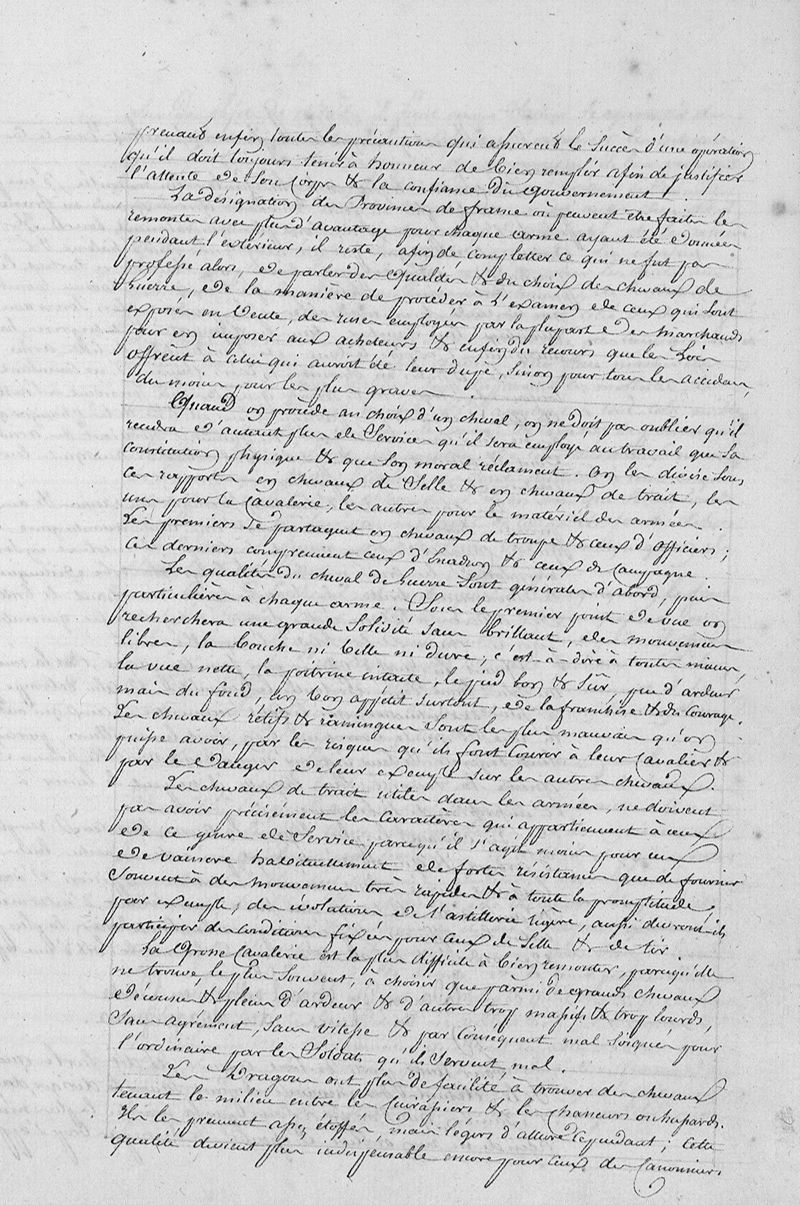 prenant enfin toutes les précautions qui assurent le succès d'une opération
qu'il doit toujours tenir à honneur de bien remplir afin de justifier
l'attente de son Corps & la confiance du Gouvernement.
La désignation des Provinces de france où peuvent être faites les
remontes avec plus d'avantage pour chaque arme ayant été donnée
pendant l'extérieur, il reste, afin de completter ce qui ne fut pas
professé alors, de parler des qualités & du choix des chevaux de
Guerre, de la manière de procéder à l'examen de ceux qui sont
exposés en Vente, des ruses employées par la plupart des marchands
pour en imposer aux acheteurs & enfin du recours que les Lois
offrent à celui qui auroit été leur dupe, sinon pour tous les accidens,
du moins pour les plus graves.
Quand on procède au choix d'un cheval, on ne doit pas oublier qu'il
rendra d'autant plus de Service qu'il sera employé au travail que sa
constitution physique & que son moral réclament. On les divise sous
ces rapports en chevaux de Selle & en chevaux de trait, les
uns pour la Cavalerie, les autres pour le matériel des armées.
Les premiers se partagent en chevaux de troupe & ceux d'officiers;
ces derniers comprennent ceux d'Escadron & ceux de Campagne.
Les qualités du cheval de Guerre sont générales d'abord, puis
particulières à chaque arme. Sous le premier point de vue on
recherchera une grande solidité sans brillant, des mouvemens
libres, la bouche ni belle ni dure; c'est-à-dire à toutes mains,
la vue nette, la poitrine intacte, le pied bon & sûr, peu d'ardeur
mais du fond, un bon appétit surtout, de la franchise & du Courage.
Les chevaux rétifs & ramingues sont les plus mauvais qu'on
puisse avoir, par les risques qu'ils font courir à leur Cavalier &
par le danger de leur exemple sur les autres chevaux.
Les chevaux de trait utiles dans les armées, ne doivent
pas avoir précisément les caractères qui appartiennent à ceux
de ce genre de Service parcequ'il s'agit moins pour eux
de vaincre habituellement de fortes résistances que de fournir
souvent à des mouvemens très rapides & à toute la promptitude,
par exemple, des évolutions de l'artillerie légère, aussi devront-ils
participer des conditions fixées pour ceux de Selle & de tir.
La Grosse Cavalerie est la plus difficile à bien remonter, parcequ'elle
ne trouve, le plus souvent, à choisir que parmi de grands chevaux
décousus & pleins d'ardeur & d'autres trop massifs & trop lourds,
sans agrément, sans vitesse & par Conséquent mal soignés pour
l'ordinaire par les Soldats qu'ils servent mal.
Les Dragons ont plus de facilité à trouver des chevaux
tenant le milieu entre les Cuirassiers & les chasseurs ou husards.
Ils les prennent assez étoffés, mais légers d'allure cependant; Cette
qualité devient plus indispensable encore pour ceux des Canonniers